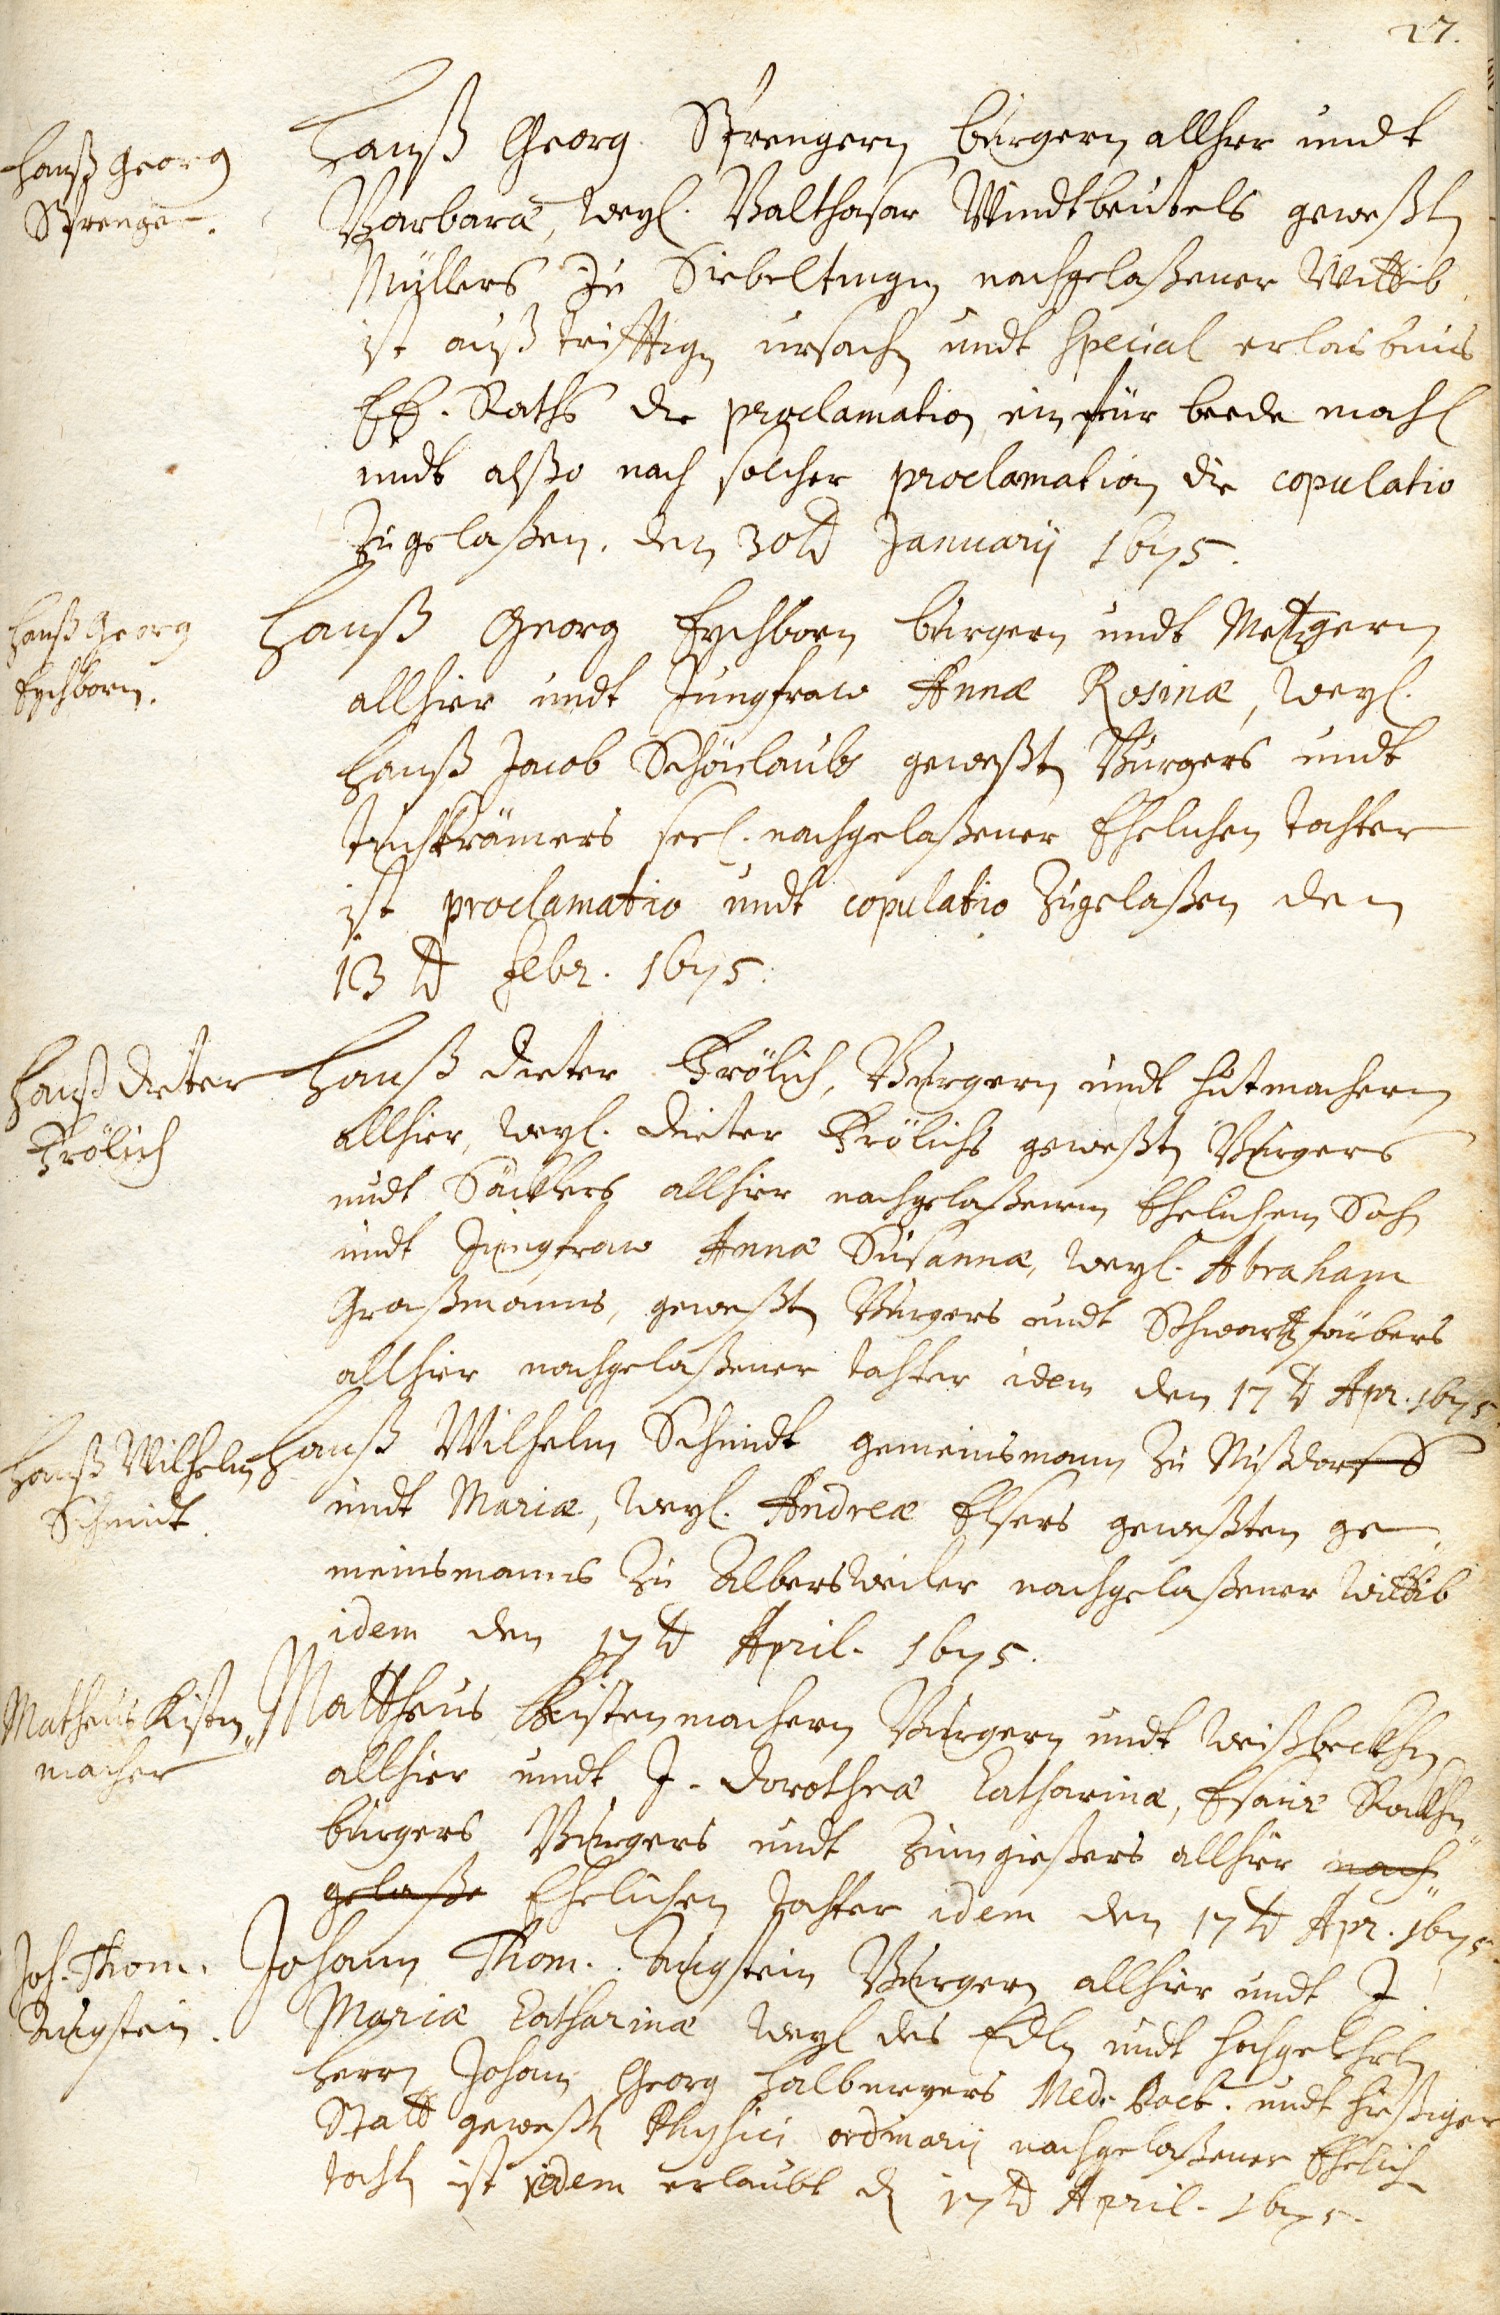 27.
Hanß Georg
Sprenger.
Hanß Georg Sprengern burgern allhier undt
Barbaræ, weyl. Balthasar Windtbeutels geweßen
Müllers zu Siebeltingen nachgelaßener Wittib
ist auß trifftigen ursachen undt special erlaubnis
EE. Raths die proclamation ein für beede mahl
undt alßo nach solcher proclamation die copulatio
zugelaßen. den 30t Januarij 1675.
Hanß Georg
Eychborn.
Hanß Georg Eychborn burgern undt Metzgern
allhier undt Jungfraw Annæ Rosinæ, weyl.
Hanß Jacob Schönlaubs geweßten Burgers undt
Tuchkrämers seel. nachgelaßener Ehelichen tochter
ist proclamatio undt copulatio zugelaßen den
13t Febr. 1675.
Hanß dieter
Frölich
Hanß dieter Frölich, Burgern undt hutmachern
allhier, weyl. dieter Frölichs geweßten Burgers
undt Säcklers allhier nachgelaßenem Ehelichem Sohn
undt Jungfraw Annæ Susannæ, weyl. Abraham
Graßmanns, geweßten Burgers undt Schwartzfärbers
allhier nachgelaßener tochter idem den 17t Apr. 1675.
Hanß Wilhelm
Schmidt.
Hanß Wilhelm Schmidt gemeinsmann zu Nußdorff
undt Mariæ, weyl. Andreæ Elsers geweßten ge-
meinsmanns zu Albersweiler nachgelaßener Wittib
idem den 17t April. 1675.
Matheus Kisten
macher
Mattheus Kistenmachern Burgern undt Weißbeckhen
allhier undt J. Dorotheæ Catharinæ, Esaiæ
burgers Burgers undt Zinngießers allhier nach
gelaße Ehelichen tochter idem den 17t Apr. 1675.
Joh. Thom.
Augstein.
Johann Thom. Augstein Burgern allhier undt J.
Mariæ Catharinæ weyl des Edlen undt hochgelehrten
herrn Johann Georg Halbmeyers Med. Doct. undt hießiger
Statt geweßten Physici ordinarij nachgelaßener Ehelich
tocht. ist idem erlaubt d. 17t April. 1675.